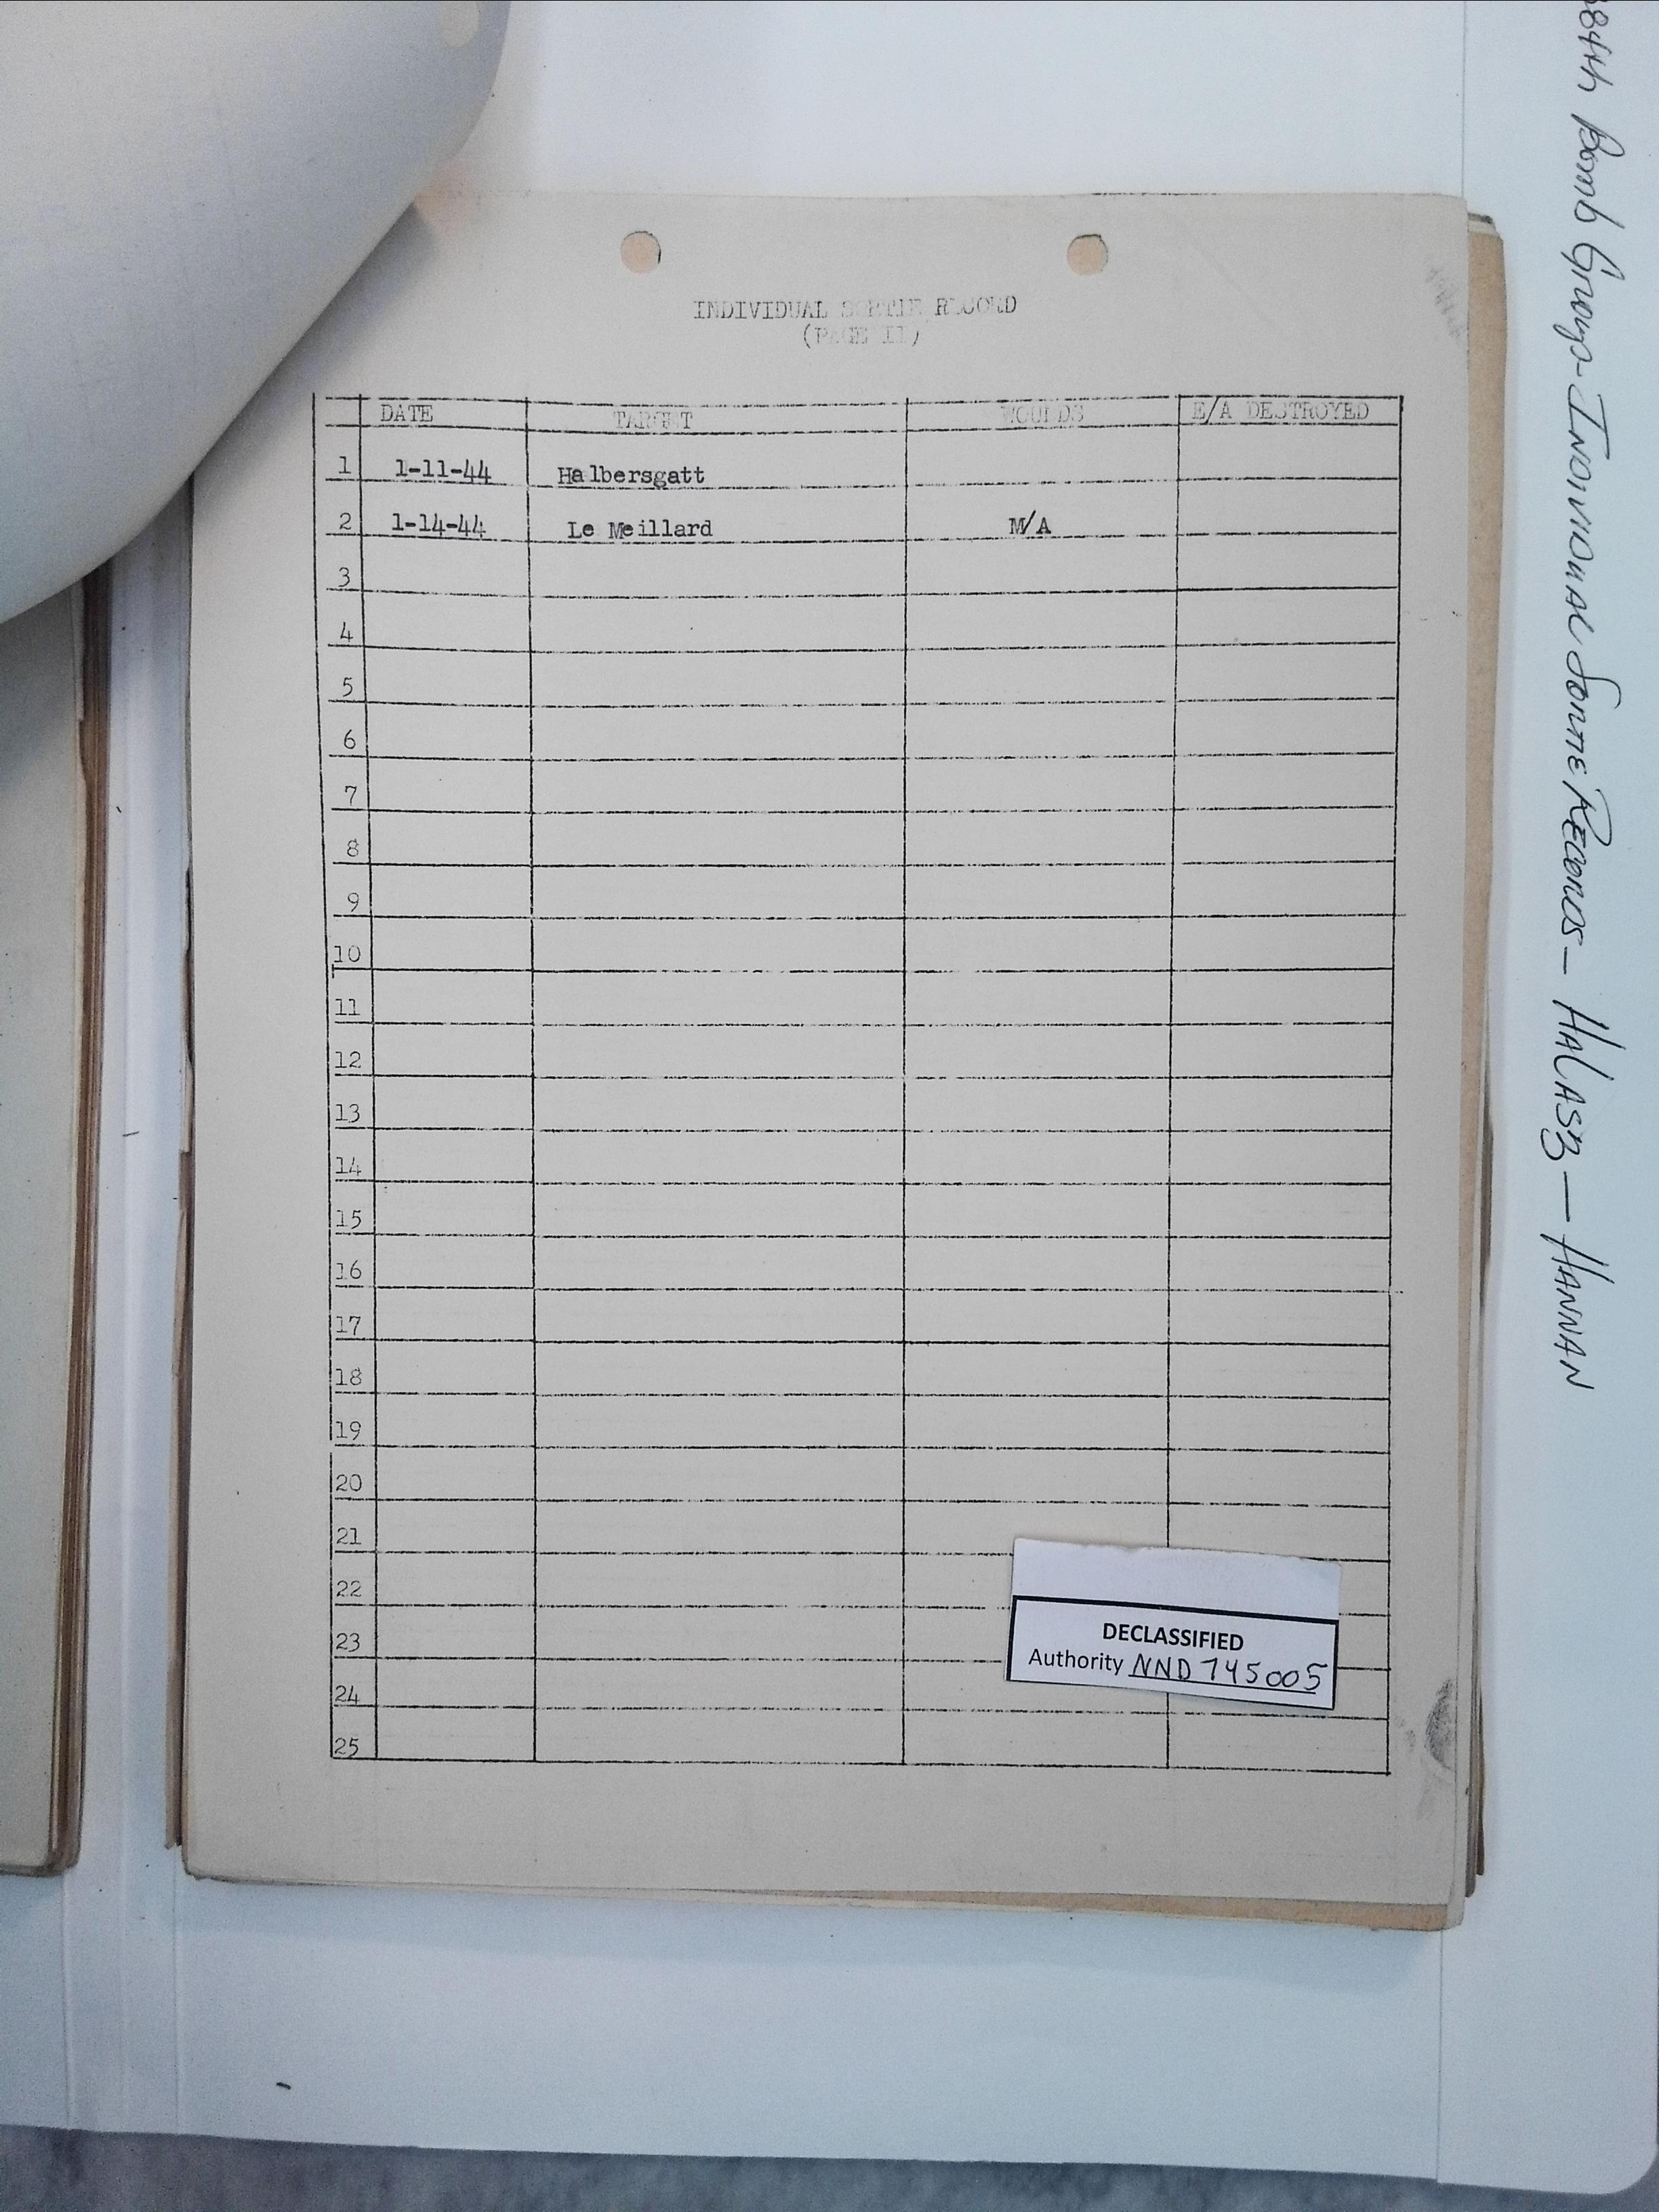 INDIVIDUAL SORTIE RECORD
(PAGE II)
DATE TARGET WOUNDS E/A DESTROYED
1 1-11-44 Halbersgatt
2 1-14-44 Le Meillard M/A
3
4
5
6
7
8
9
10
11
12
13
14
15
16
17
18
19
20
21
22
23
24
25
DECLASSIFIED
Authority NND 745005
384th Bomb Group - Individual Sortie Records - HALASZ - HANNAN